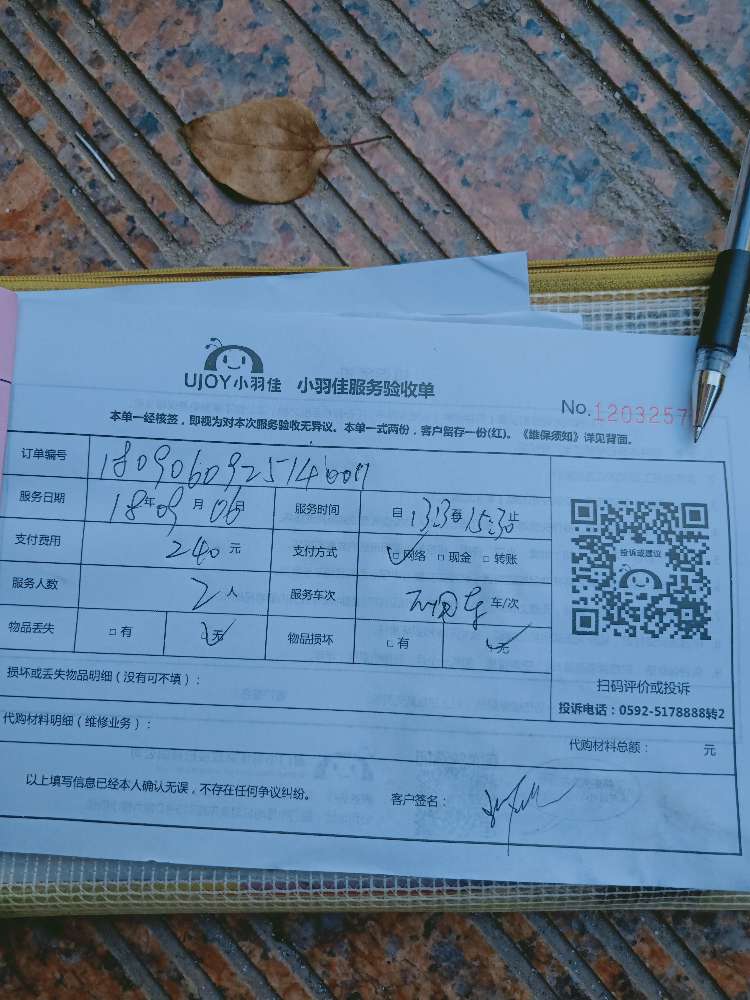 UJOY小羽佳 小羽佳服务验收单
No.1203257
本单一经核签，即视为对本次服务验收无异议。本单一式两份，客户留存一份(红)。《维保须知》详见背面。
订单编号 180906092514001
服务日期 18年09月06日 服务时间 自 止 15:30
支付费用 240元 支付方式 □网络 □现金 □转账
服务人数 2人 服务车次 不用车 车/次
物品丢失 □有 □无 物品损坏 □有 □无
投诉或建议
扫码评价或投诉
投诉电话：0592-5178888转2
损坏或丢失物品明细（没有可不填）：
代购材料明细（维修业务）：
代购材料总额： 元
以上填写信息已经本人确认无误，不存在任何争议纠纷。 客户签名：